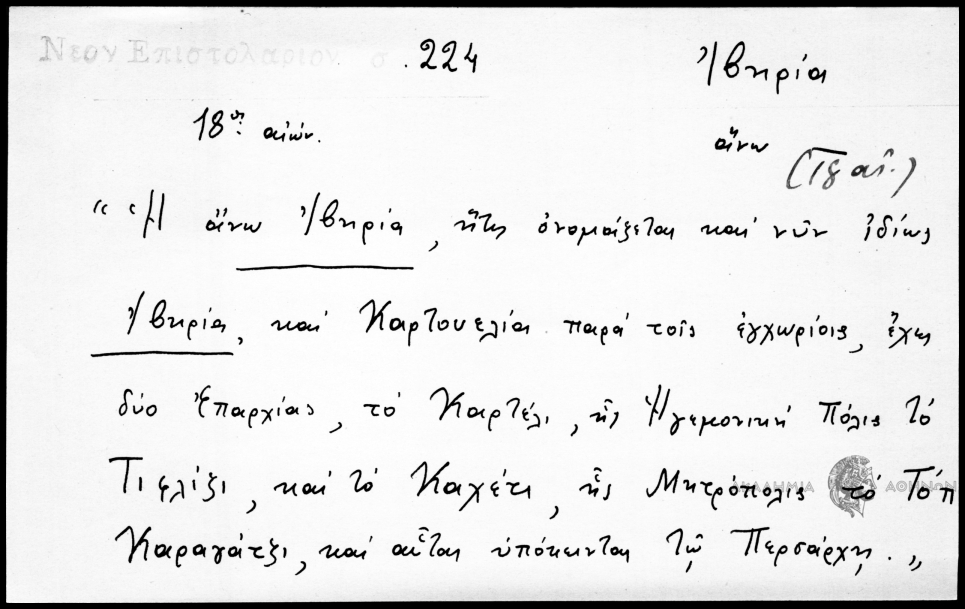 Νεον Επιστολαριον σ. 224
Ἰβηρία
18ος αἰών.
ἄνω
“ Ἡ ἄνω Ἰβηρία, ἥτις ὀνομάζεται καί νῦν ἰδίως
Ἰβηρία, καί Καρτουελία παρά τοῖς ἐγχωρίοις, ἔχει
δύο Ἐπαρχίας, τό Καρτέλι, ἧς Ἡγεμονική Πόλις τό
Τιφλίζι, καί τό Καχέτι, ἧς Μητρόπολις τό Τόπ
ΑΚΑΔΗΜΙΑ ΑΘΗΝΩΝ
Καραγάτζι, καί αὗται ὑπόκεινται τῷ Περσάρχῃ. „